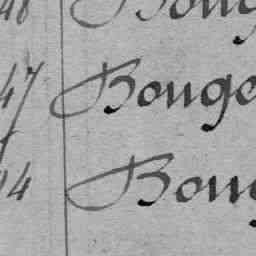 48 Boug
47 Bouge
94 Boug